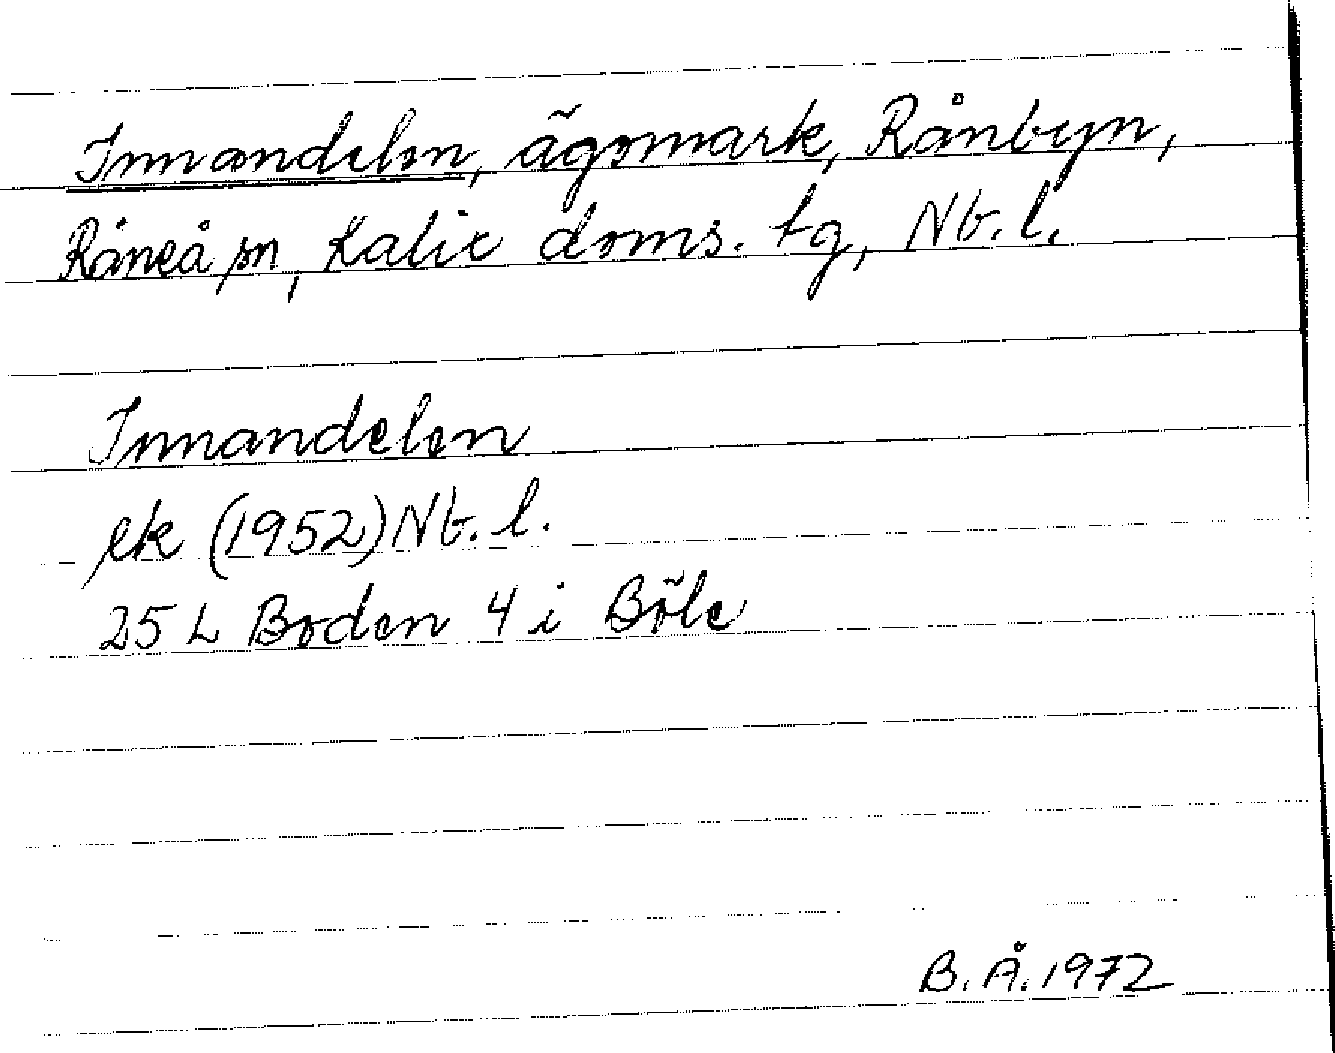 Innandelen, ägomark, Rånbyn,
Råneå sn, Kalix doms. tg, Nb. l.
Innandelen
ek (1952) Nb. l.
25 L Boden 4 i Böle
B. Å. 1972